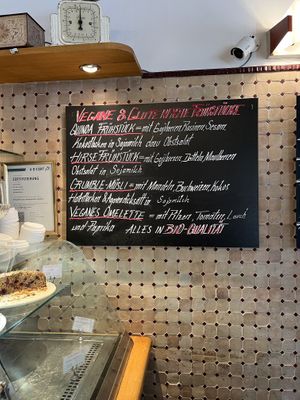 VEGANE & GLUTENFREIE FRÜHSTÜCKE
QUINOA FRÜHSTÜCK = mit Gojibeeren, Rosinen, Sesam
Kokosflocken in Sojamilch dazu Obstsalat
HIRSE FRÜHSTÜCK = mit Gojibeeren, Datteln, Maulbeeren
Obstsalat in Sojamilch
CRUMBLE-MÜSLI = mit Mandeln, Buchweizen, Kokos
in Sojamilch
VEGANES OMELETTE = mit Pilzen, Tomaten, Lauch
und Paprika ALLES IN BIO-QUALITÄT